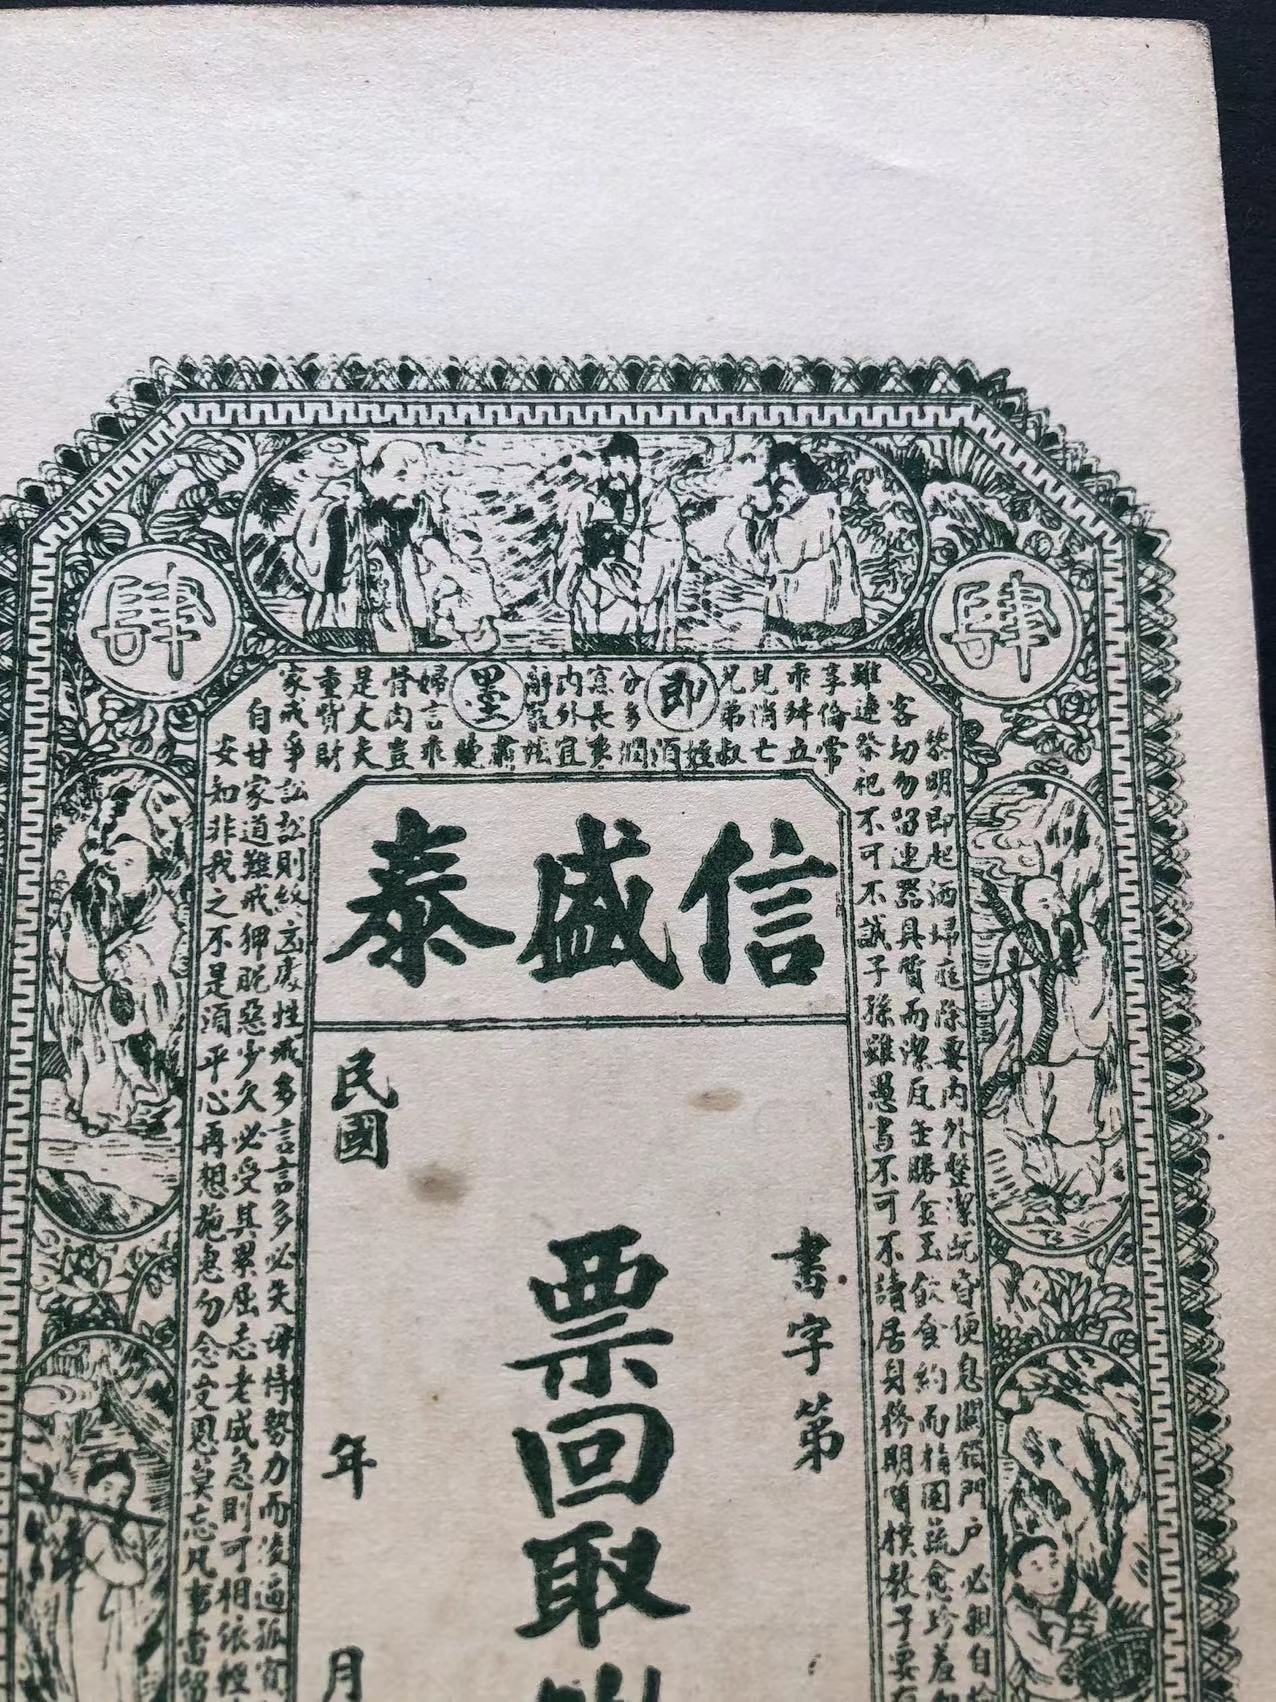 肆
肆
即
墨
信盛泰
黎明即起洒掃庭除要內外整潔既昏便息關鎖門戶必親自檢
客切勿留連器具質而潔瓦缶勝金玉飲食約而精園蔬愈珍羞勿
雖遠祭祀不可不誠子孫雖愚書不可不讀居身務期質樸教子要有
享倫常
乖舛立
見消亡
兄弟叔
姪
須
分多潤
寡長東
內外宜
辭嚴法
肅
聽
婦言乖
骨肉豈
是丈夫
重貲財
家戒爭訟訟則終凶處性戒多言言多必失毋恃勢力而凌逼孤寡
自甘家道難戒狎昵惡少久必受其累屈志老成急則可相依輕
安知非我之不是須平心再想施惠勿念受恩莫忘凡事當留
書字第
票回取
民國
年
月